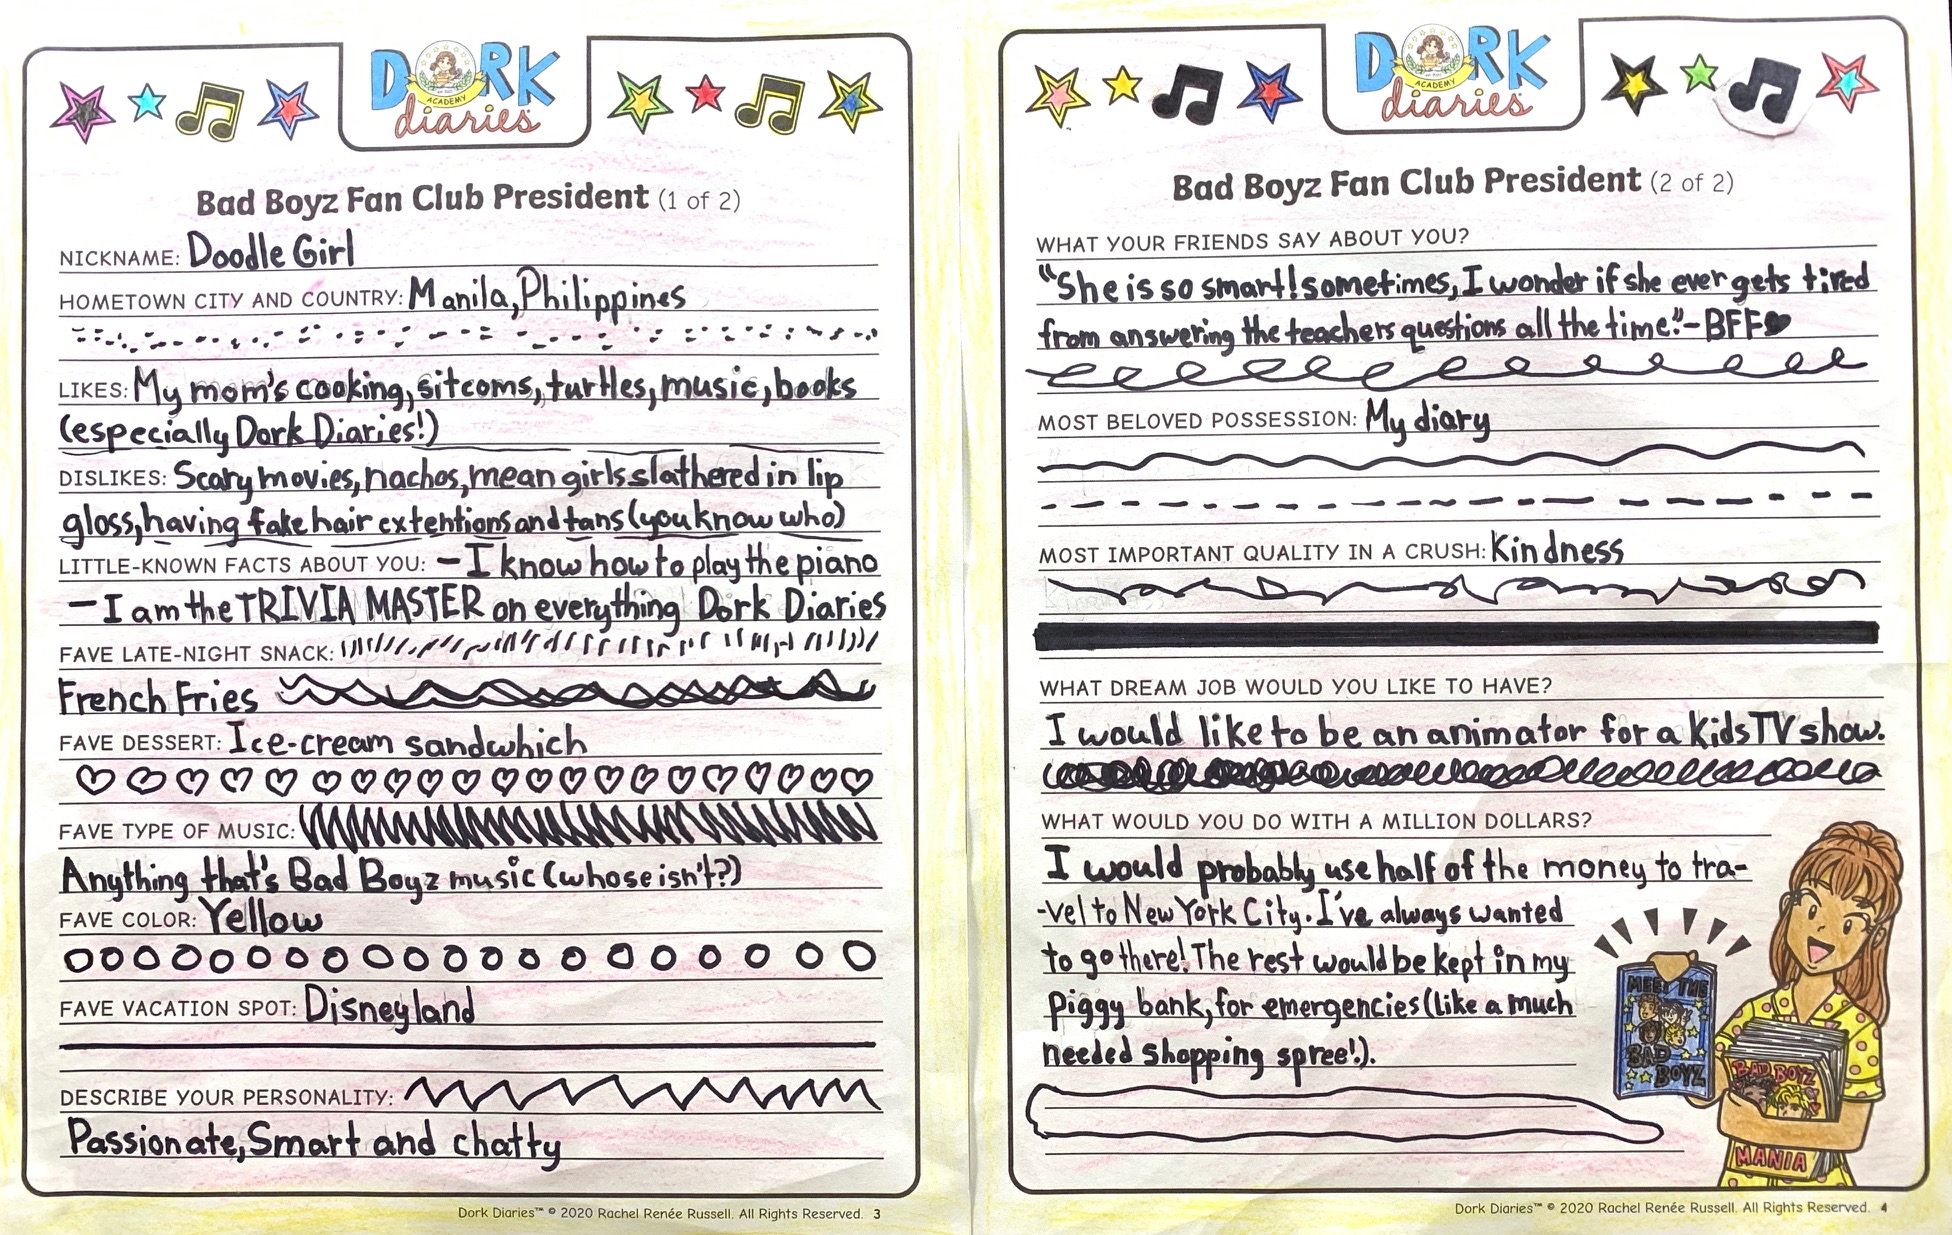 DORK
ACADEMY
diaries
Bad Boyz Fan Club President (1 of 2)
NICKNAME: Doodle Girl
HOMETOWN CITY AND COUNTRY: Manila, Philippines
LIKES: My mom's cooking, sitcoms, turtles, music, books
(especially Dork Diaries!)
DISLIKES: Scary movies, nachos, mean girls slathered in lip
gloss, having fake hair extentions and tans (you know who)
LITTLE-KNOWN FACTS ABOUT YOU: - I know how to play the piano
- I am the TRIVIA MASTER on everything Dork Diaries
FAVE LATE-NIGHT SNACK:
French Fries
FAVE DESSERT: Ice-cream sandwhich
FAVE TYPE OF MUSIC:
Anything that's Bad Boyz music (whose isn't?)
FAVE COLOR: Yellow
FAVE VACATION SPOT: Disneyland
DESCRIBE YOUR PERSONALITY:
Passionate, Smart and chatty
Dork Diaries™ © 2020 Rachel Renée Russell. All Rights Reserved. 3
DORK
ACADEMY
diaries
Bad Boyz Fan Club President (2 of 2)
WHAT YOUR FRIENDS SAY ABOUT YOU?
"She is so smart! sometimes, I wonder if she ever gets tired
from answering the teachers questions all the time." - BFF♥
MOST BELOVED POSSESSION: My diary
MOST IMPORTANT QUALITY IN A CRUSH: Kindness
WHAT DREAM JOB WOULD YOU LIKE TO HAVE?
I would like to be an animator for a Kids TV show.
WHAT WOULD YOU DO WITH A MILLION DOLLARS?
I would probably use half of the money to tra-
-vel to New York City. I've always wanted
to go there! The rest would be kept in my
piggy bank, for emergencies (like a much
needed shopping spree!).
MEET THE
BAD
BOYZ
BAD BOYZ
MANIA
Dork Diaries™ © 2020 Rachel Renée Russell. All Rights Reserved. 4